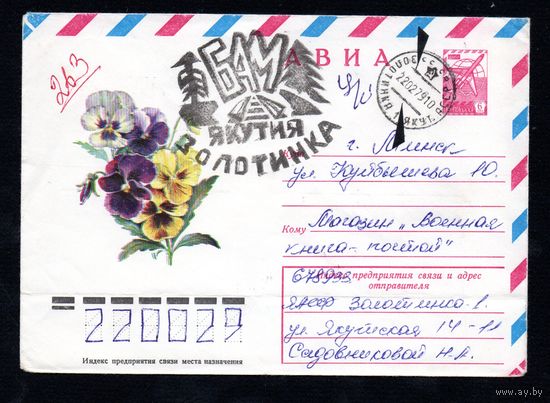 263
БАМ
ЯКУТИЯ
ЗОЛОТИНКА
АВИА
6
ЗОЛОТИНКА
22027910
ЯКУТ. АССР
г. Минск
ул. Куйбышева 10.
Кому Магазин „Военная
книга-почтой"
678993
Индекс предприятия связи и адрес
отправителя
ЯАССР Золотинка-1.
ул. Якутская 14-11
Садовниковой Н.А.
220029
Индекс предприятия связи места назначения
ay.by